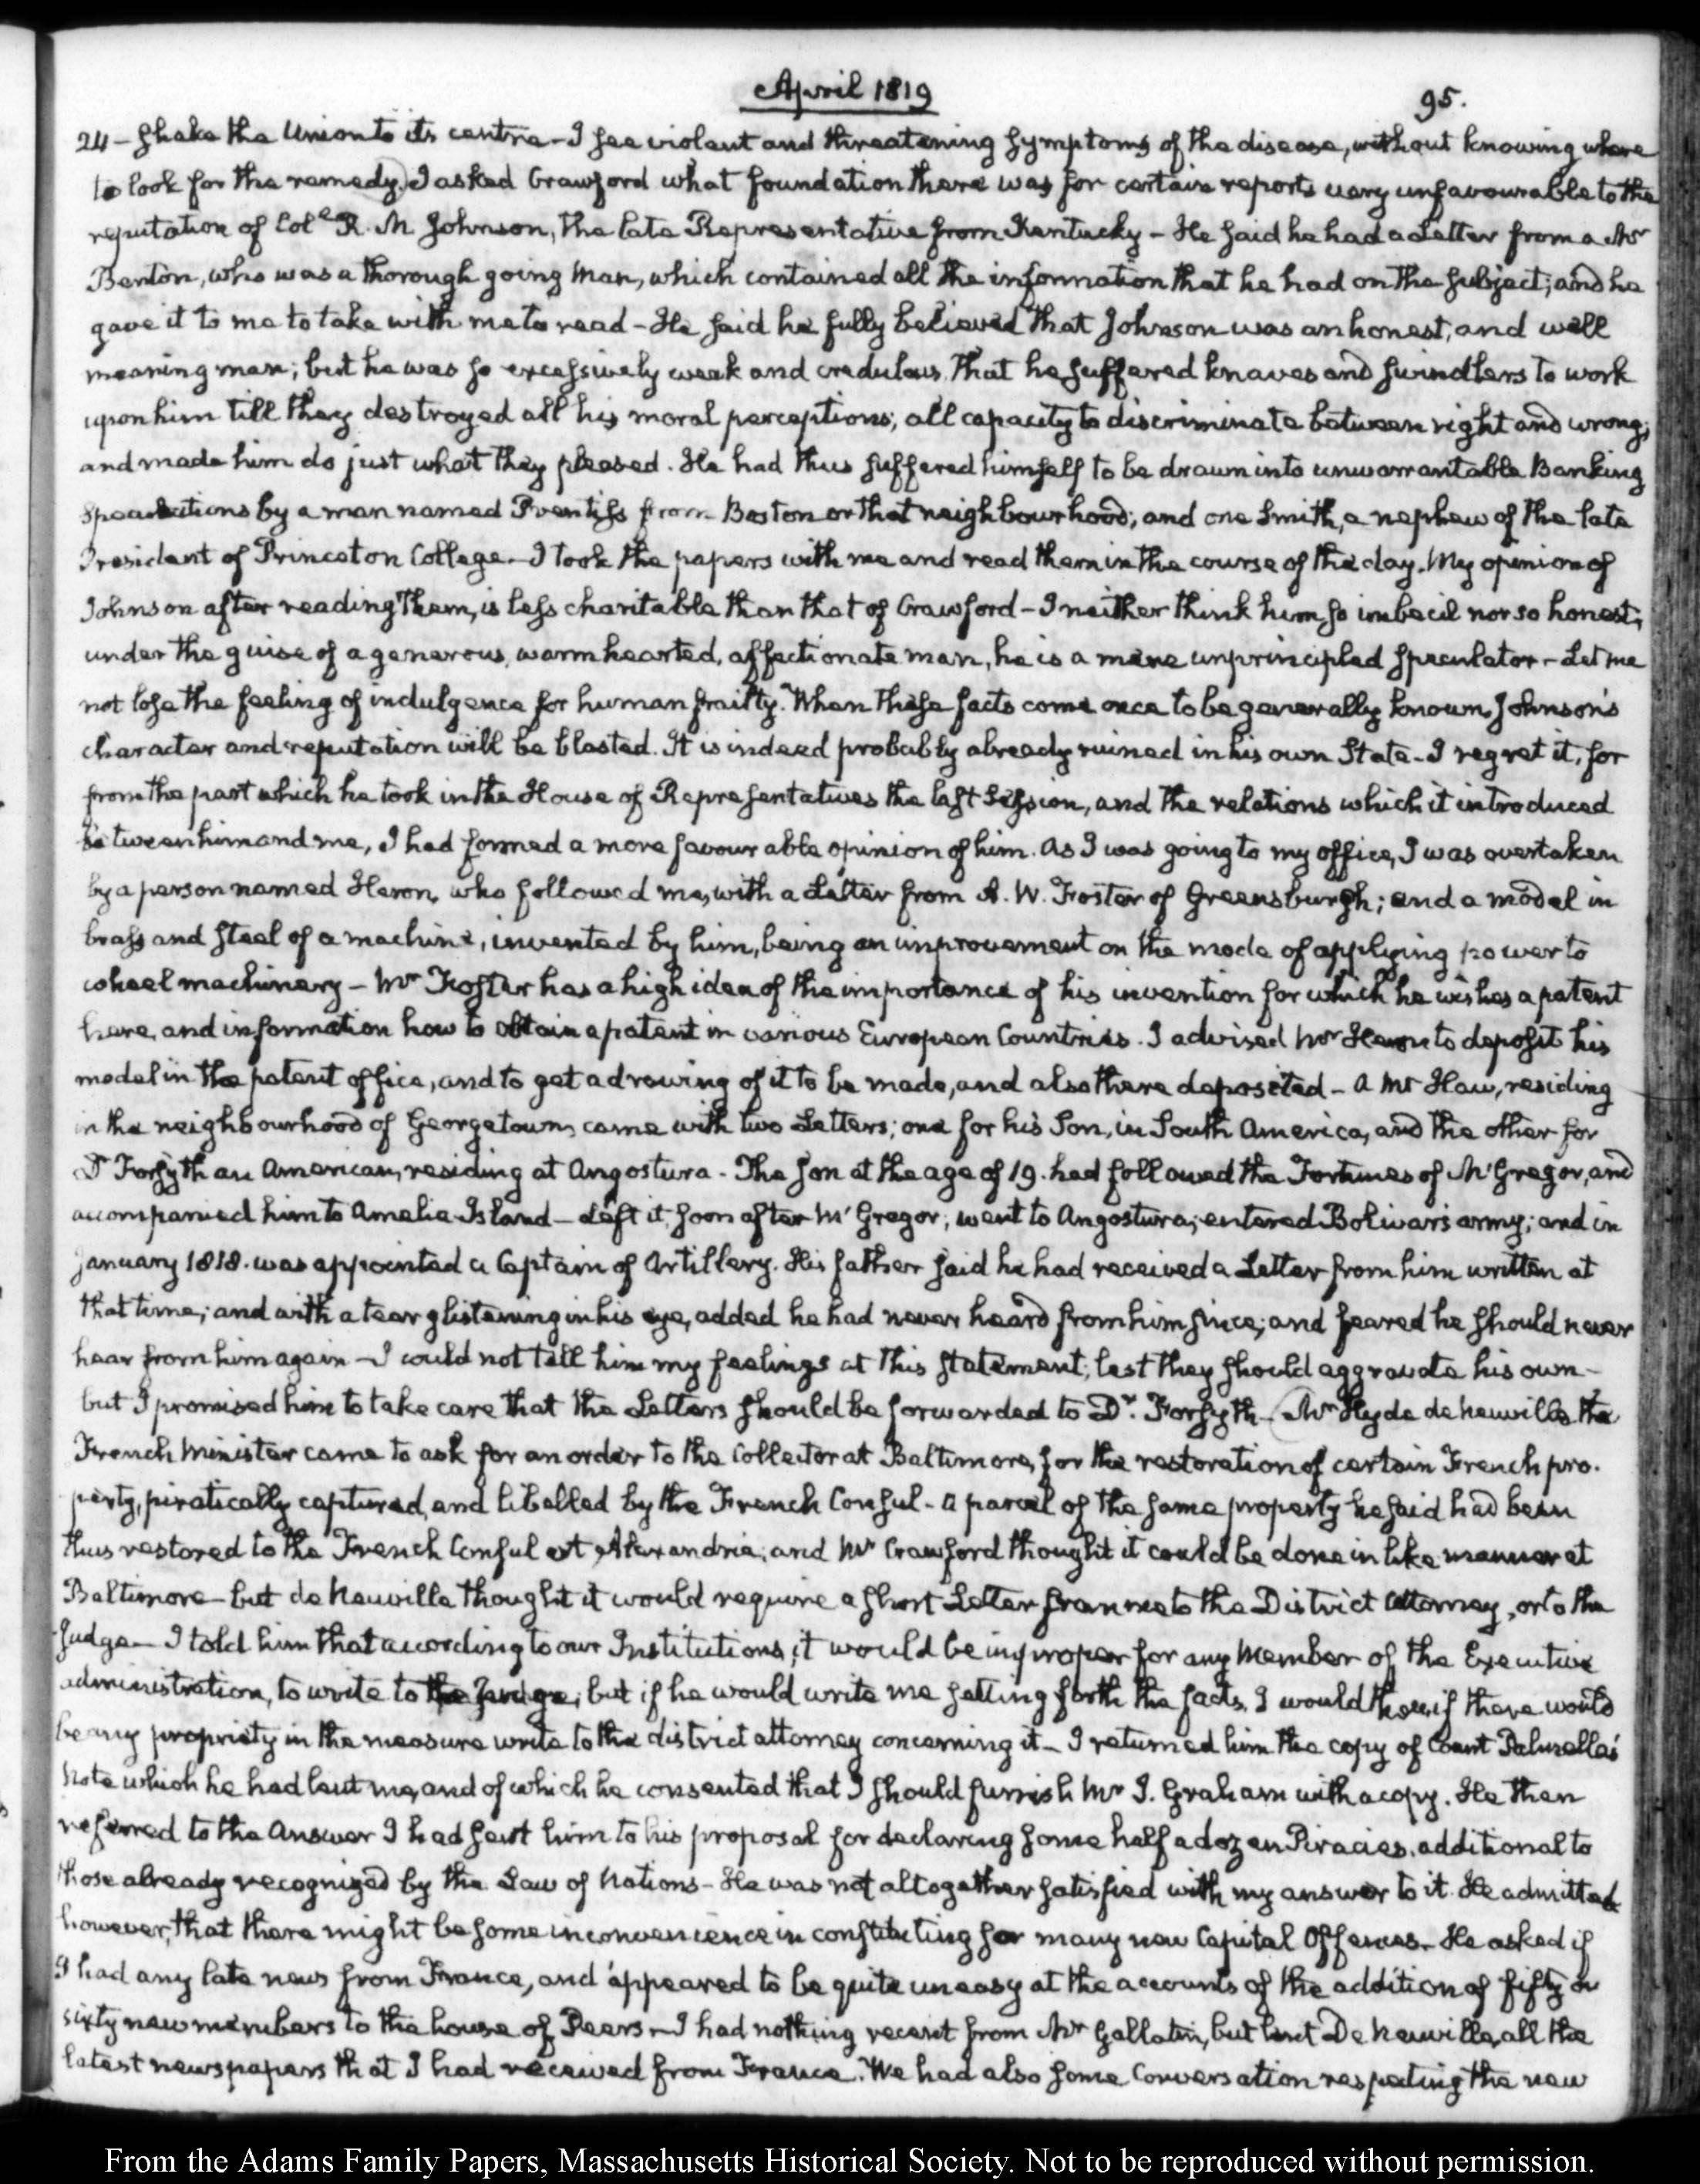 April 1819
95.
24 – shake the Union to its centre – I see violent and threatening symptoms of the disease, without knowing where
to look for the remedy. I asked Crawford what foundation there was for certain reports very unfavourable to the
reputation of Coll R. M Johnson, the late Representative from Kentucky – He said he had a Letter from a Mr
Benton, who was a thorough going man, which contained all the information that he had on the subject; and he
gave it to me to take with me to read – He said he fully believed that Johnson was an honest, and well
meaning man; but he was so excessively weak and credulous, that he suffered knaves and swindlers to work
upon him till they destroyed all his moral perceptions; all capacity to discriminate between right and wrong;
and made him do just what they pleased. He had thus suffered himself to be drawn into unwarrantable Banking
Speculations by a man named Prentiss from Boston or that neighbourhood; and one Smith, a nephew of the late
President of Princeton College – I took the papers with me and read them in the course of the day. My opinion of
Johnson after reading them, is less charitable than that of Crawford – I neither think him so imbecil nor so honest;
under the guise of a generous, warm hearted, affectionate man, he is a mere unprincipled speculator – Let me
not lose the feeling of indulgence for human frailty. When these facts come once to be generally known, Johnson's
character and reputation will be blasted. It is indeed probably already ruined in his own State – I regret it, for
from the part which he took in the House of Representatives the last Session, and the relations which it introduced
between him and me, I had formed a more favourable opinion of him. As I was going to my office, I was overtaken
by a person named Heron, who followed me, with a Letter from A. W. Foster of Greensburgh; and a model in
brass and steel of a machine, invented by him, being an improvement on the mode of applying power to
wheel machinery – Mr Foster has a high idea of the importance of his invention for which he wishes a patent
here, and information how to obtain a patent in various European Countries. I advised Mr Heron to deposit his
model in the patent office, and to get a drawing of it to be made, and also there deposited – A Mr Haw, residing
in the neighbourhood of Georgetown, came with two Letters; one for his Son, in South America, and the other for
Dr Forsyth an American, residing at Angostura. The son at the age of 19. had followed the Fortunes of McGregor, and
accompanied him to Amelia Island – Left it soon after McGregor; went to Angostura; entered Bolivar's army; and in
January 1818. was appointed a Captain of Artillery. His father said he had received a Letter from him written at
that time; and with a tear glistening in his eye, added he had never heard from him since; and feared he should never
hear from him again – I could not tell him my feelings at this statement; lest they should aggravate his own –
but I promised him to take care that the Letters should be forwarded to Dr. Forsyth – Mr Hyde de Neuville the
French Minister came to ask for an order to the Collector at Baltimore, for the restoration of certain French pro-
perty, piratically captured, and libelled by the French Consul – A parcel of the same property he said had been
thus restored to the French Consul at Alexandria; and Mr Crawford thought it could be done in like manner at
Baltimore – but de Neuville thought it would require a short Letter from me to the District Attorney, or to the
Judge – I told him that according to our Institutions, it would be improper for any Member of the Executive
administration, to write to the Judge; but if he would write me setting forth the facts, I would then, if there would
be any propriety in the measure write to the district attorney concerning it – I returned him the copy of Count Palmella's
Note which he had lent me, and of which he consented that I should furnish Mr J. Graham with a copy. He then
referred to the Answer I had sent him to his proposal for declaring some half a dozen Piracies, additional to
those already recognized by the Law of Nations – He was not altogether satisfied with my answer to it. He admitted
however, that there might be some inconvenience in constituting so many new Capital Offences – He asked if
I had any late news from France, and appeared to be quite uneasy at the accounts of the addition of fifty or
sixty new members to the house of Peers – I had nothing recent from Mr Gallatin, but lent De Neuville, all the
latest newspapers that I had received from France. We had also some Conversation respecting the new
From the Adams Family Papers, Massachusetts Historical Society. Not to be reproduced without permission.